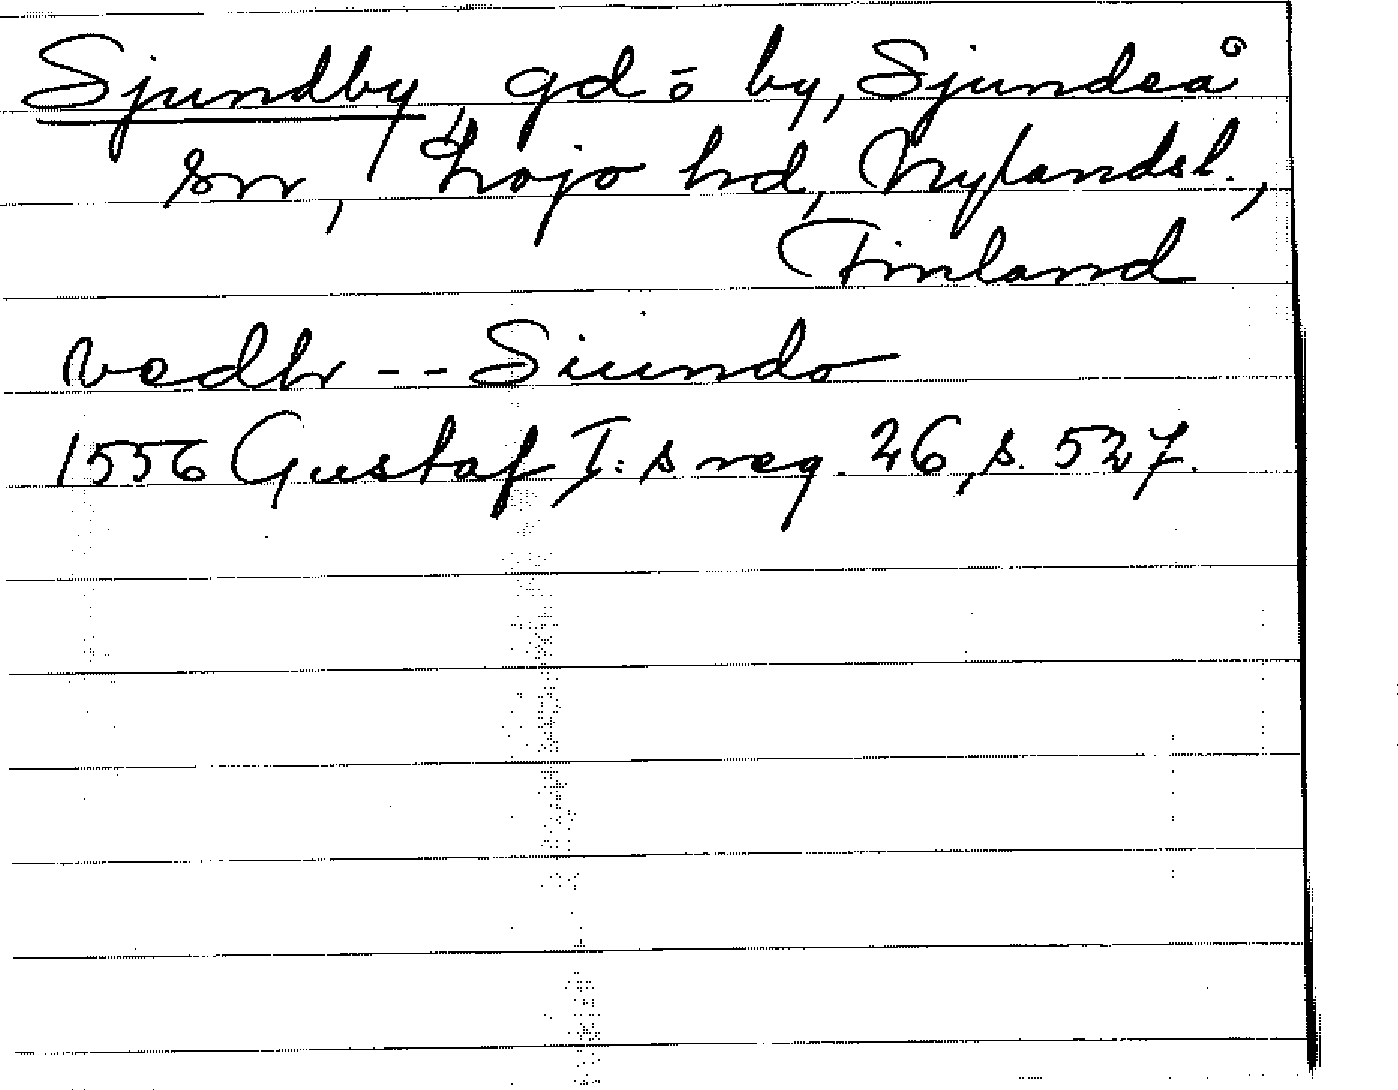 Sjundby, gd o by, Sjundeå
sn, Lojo hd, Nylandsl.,
Finland
vedh -- Siundo
1556 Gustaf I:s reg. 26, s. 527.